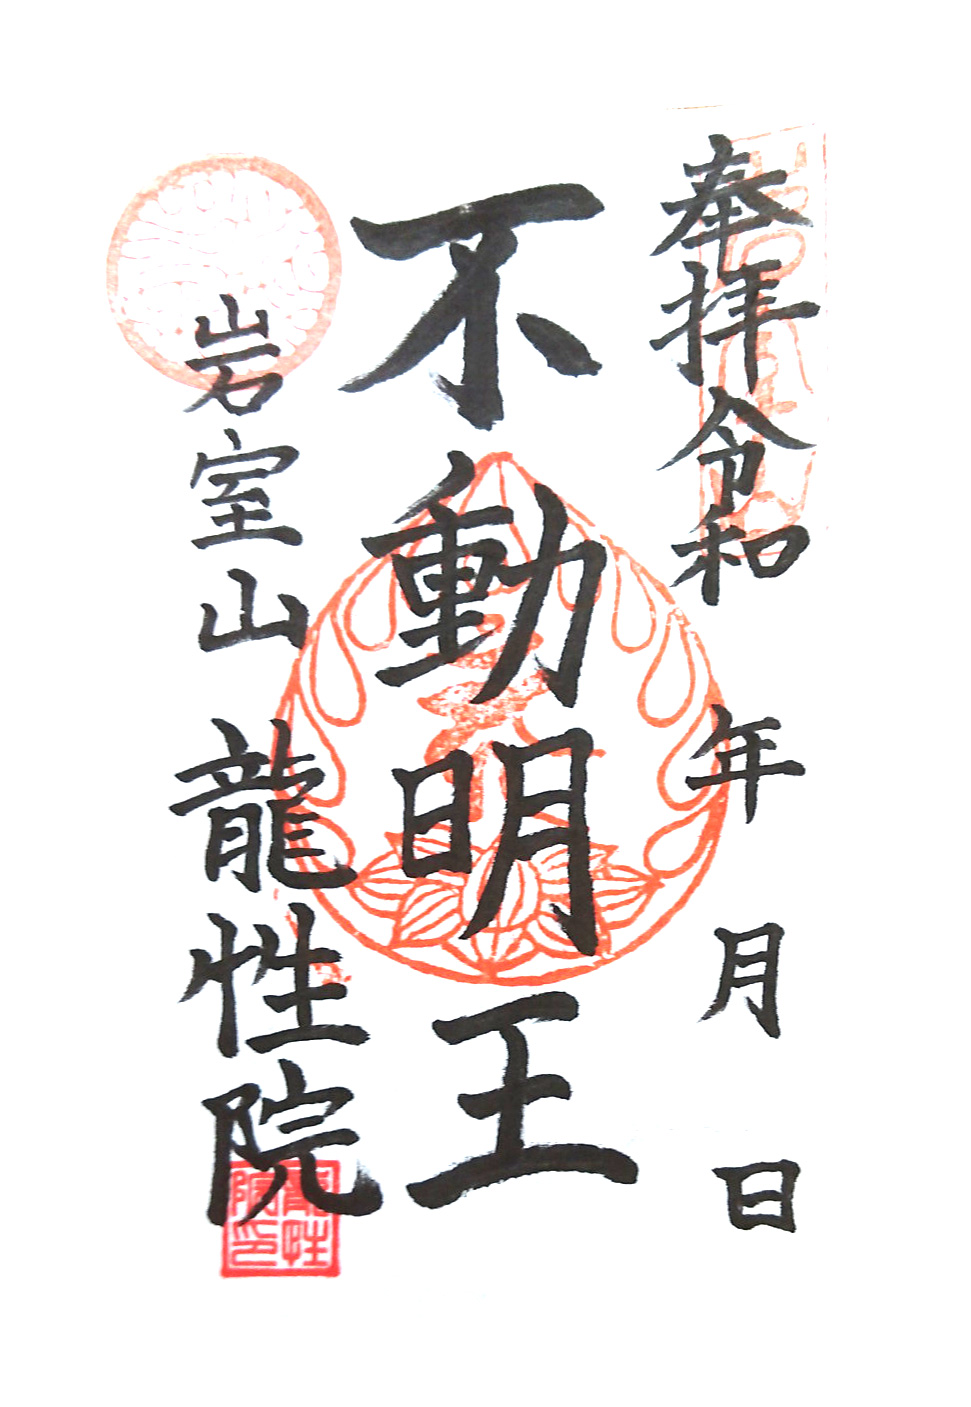 奉拝 令和 年 月 日
不動明王
岩室山 龍性院
龍性院印